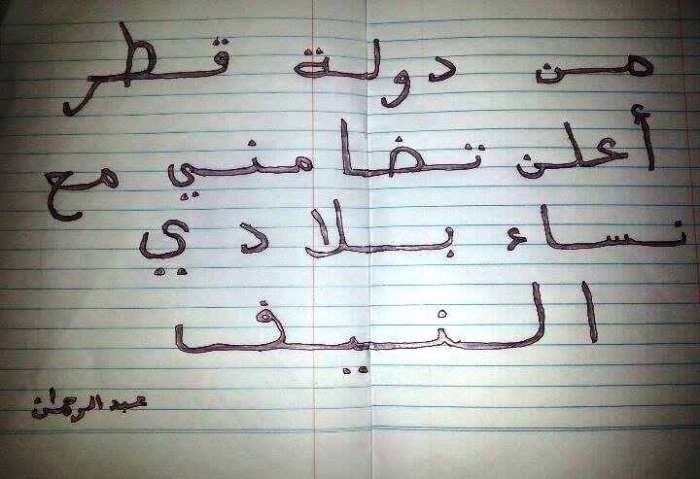 من دولة قطر
أعلن تضامني مع
نساء بلادي
النيف
عبد الرحمان